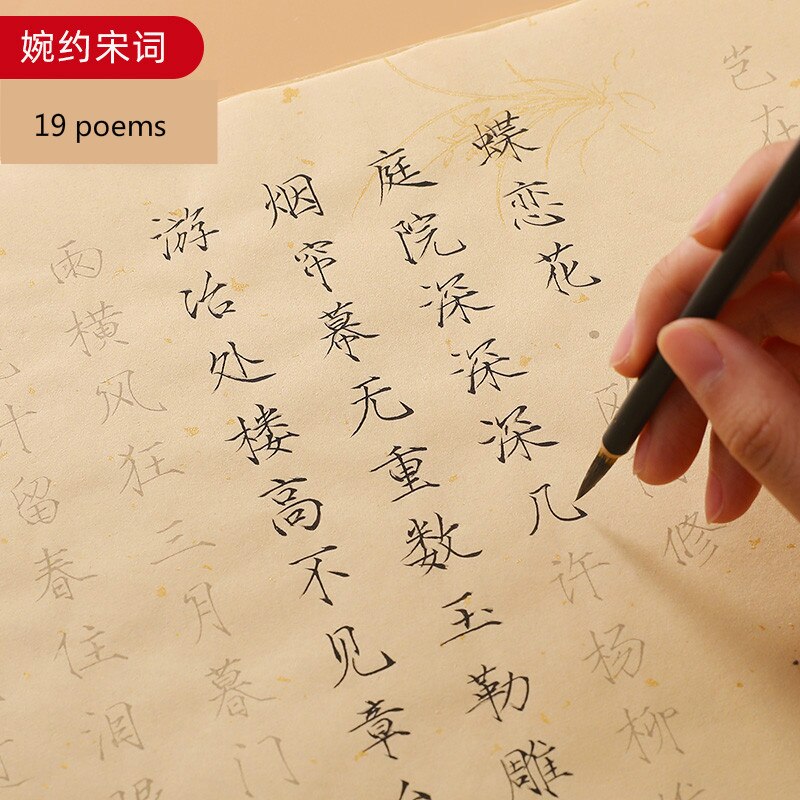 婉约宋词
19 poems
岂在
蝶恋花 欧阳修
庭院深深深几许杨柳
烟帘幕无重数玉勒雕
游冶处楼高不见章
雨横风狂三月暮门
计留春住泪